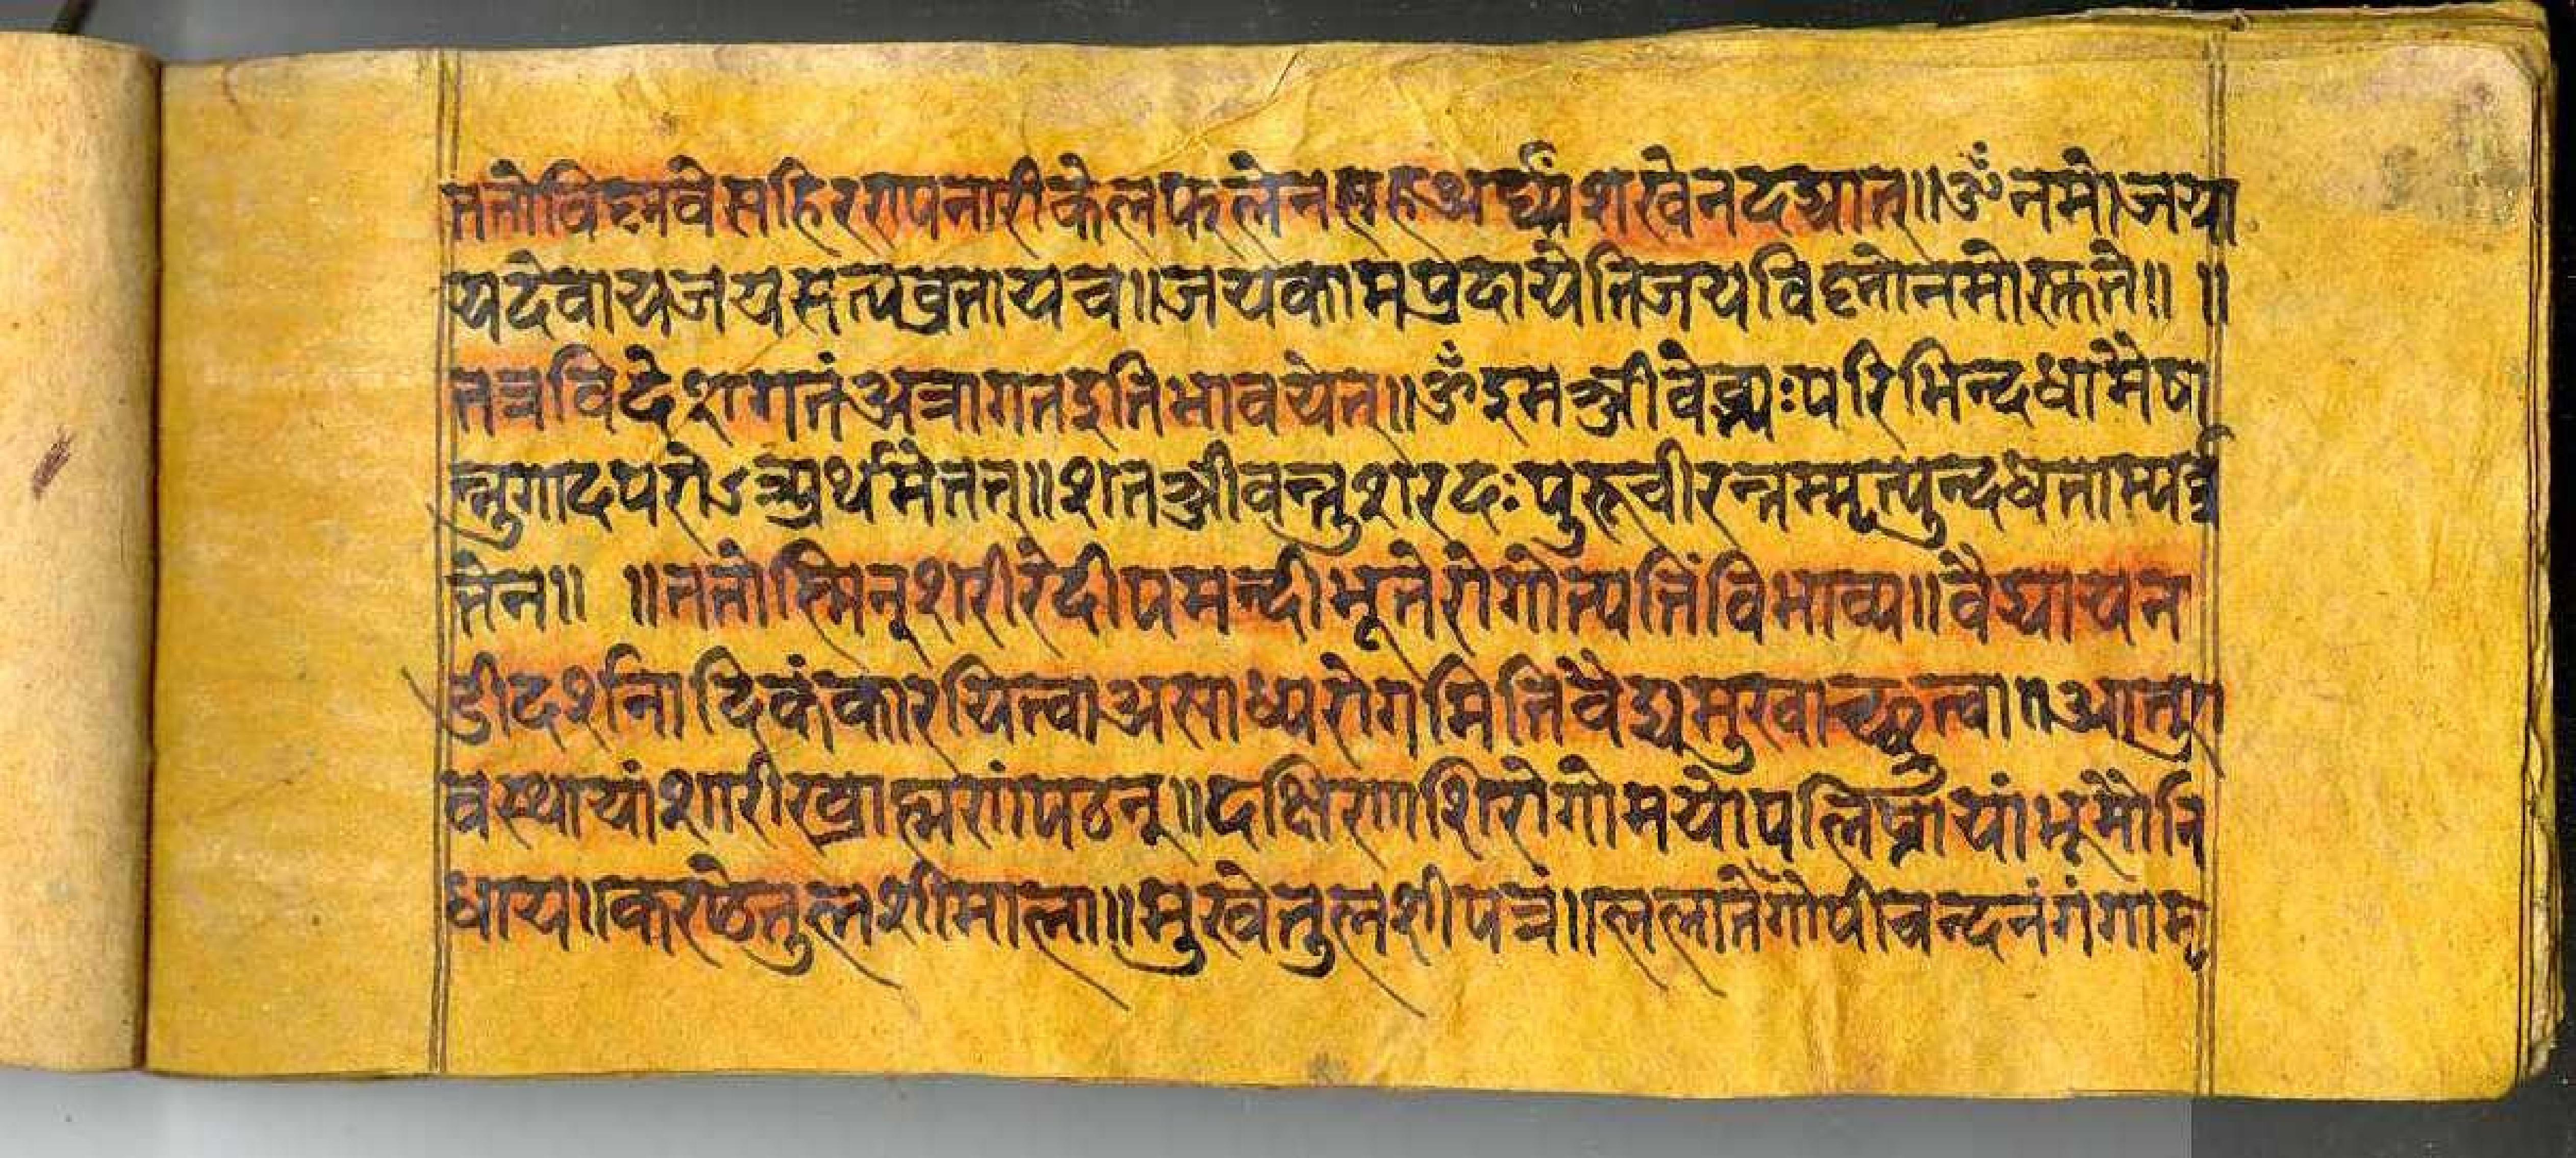 ततोविह्नवेसहिरण्यनारीकेलफलेनसहअर्घ्यंशखेनदद्यात्॥ॐनमोजया
यदेवायजयसत्यव्रतायच॥जयकामप्रदायेतिजयविष्नोनमोस्तुते॥ ॥
तत्रविदेशगतंअत्रागतइतिभावयेत्॥ॐइमञ्जीवेभ्यःपरिधिन्दधामैषा
न्नुगादपरोऽअर्थमेतत्॥शतञ्जीवन्तुशरदःपुरूचीरन्तर्म्मृत्युन्दधताम्पर्व्व
तेन॥ ॥ततोस्मिन्शरीरेदीपमन्दीभूतेरोगोत्पत्तिंविभाव्य॥वैद्यायन
डीदर्शनादिकंकारयित्वाअसाध्यरोगमितिवैद्यमुखाच्छ्रुत्वा॥आतुरा
वस्थायांशारीरब्राह्मणंपठन्॥दक्षिणशिरोगोमयोपलिप्तायांभूमौनि
धाय॥कण्ठेतुलशीमाला॥मुखेतुलशीपत्रं॥ललातेगोपीचन्दनंगंगामृ